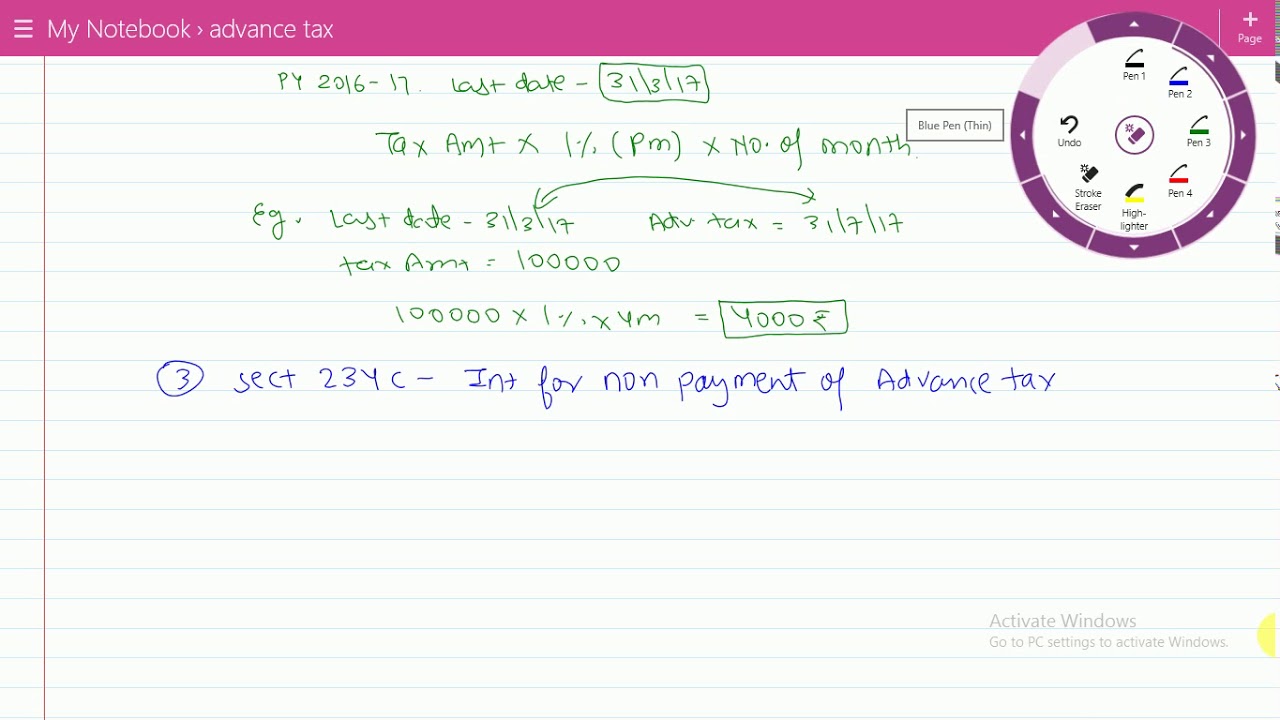 My Notebook › advance tax
+
Page
PY 2016-17. Last date - 31/3/17
Tax Amt x 1% (Pm) x No. of month.
Eg. Last date - 31/3/17 Adv tax = 31/7/17
tax Amt = 100000
100000 x 1% x 4m = 4000₹
③ sect 234C - Int for non payment of Advance tax
Blue Pen (Thin)
Pen 1
Pen 2
Undo
Pen 3
Stroke
Eraser
High-
lighter
Pen 4
Activate Windows
Go to PC settings to activate Windows.